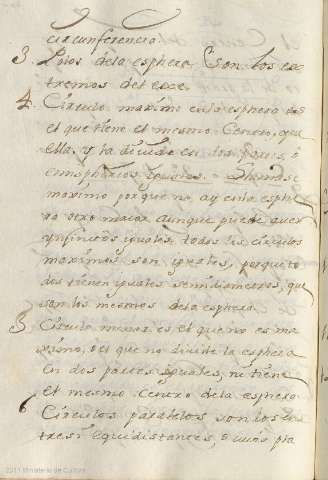 circunferencia
3. Polos dela esphera son los ex
tremos del exe.
4. Circulo maximo en la esphera es
el que tiene el mesmo Centro, que
ella, y la divide en dos partes, ò
emispherios iguales. Llamase
maximo porque no ay en la esphe
ra otro maior aunque puede aver
ynfinitos iguales todos los circulos
maximos son iguales, porque to
dos tienen iguales semidiametros, que
son los mesmos dela esphera.
5. Circulo menor es el que no es ma
ximo, ò el que no divide la esphera
en dos partes iguales, ni tiene
el mesmo Centro dela esphera
6. Circulos paralelos son los en
tre si equidistantes, ò cuios pla
2011 Ministerio de Cultura